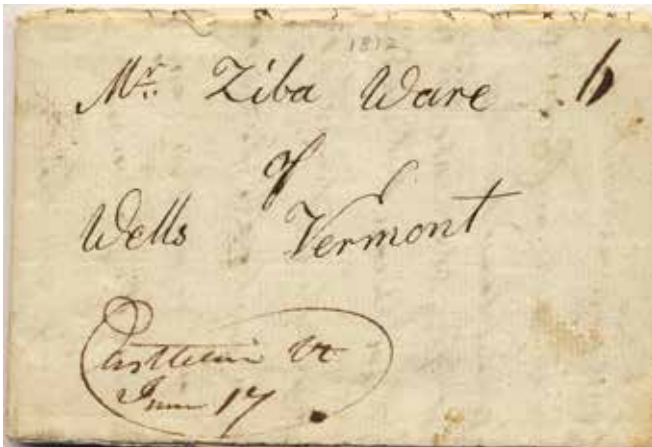 1812
Mr. Ziba Ware 6
of
Wells Vermont
Castleton Vt
June 17